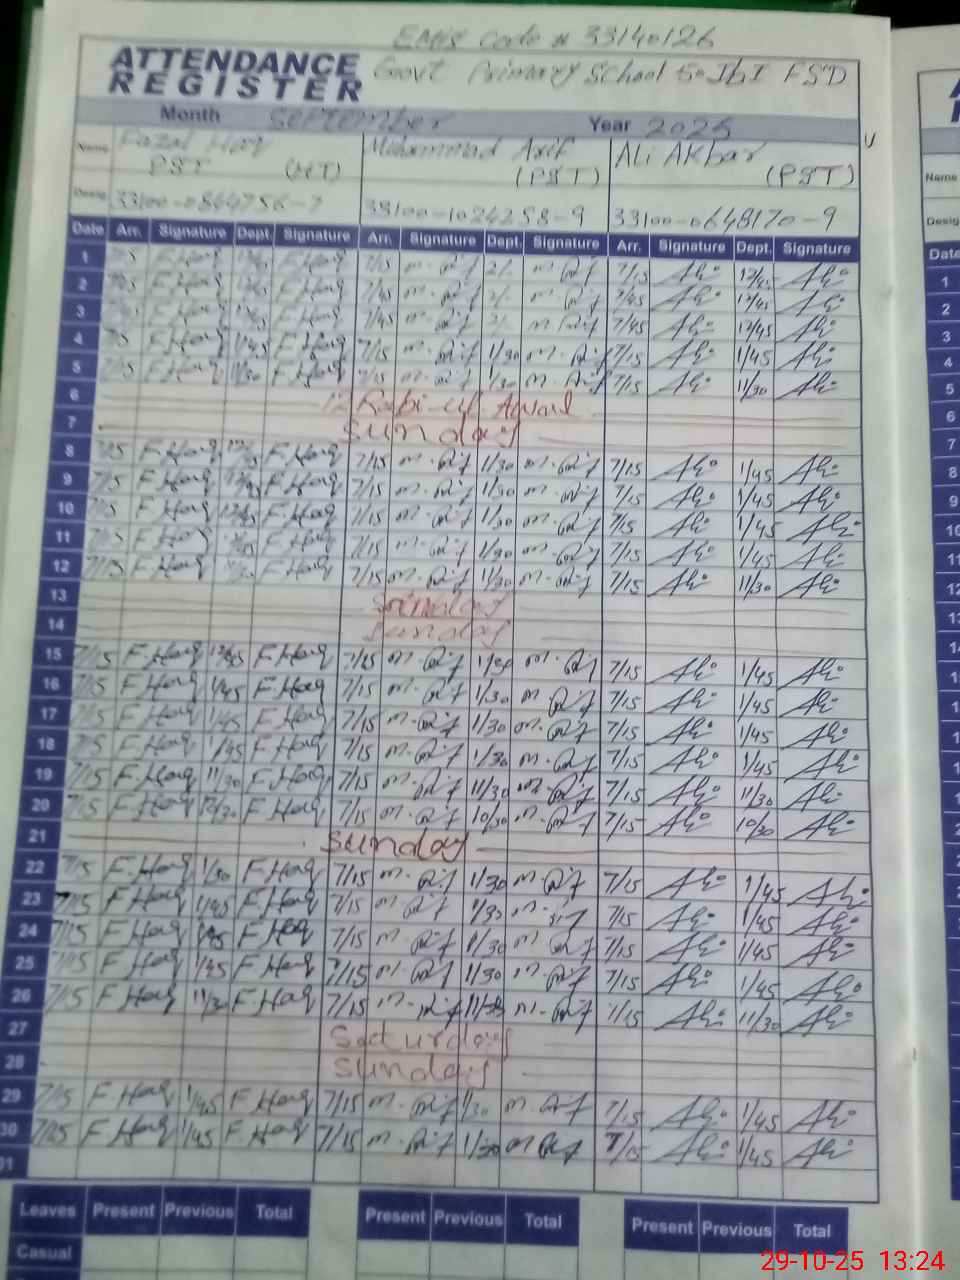 EMIS Code # 33140126
ATTENDANCE REGISTER
Govt Primary School 50 JbI FSD
Month September Year 2025
Name Fazal Haq Muhammad Arif Ali Akbar
PST (HT) (PST) (PST)
Desig. 33100-0864756-7 33100-1024258-9 33100-0648170-9
Date Arr. Signature Dept. Signature Arr. Signature Dept. Signature Arr. Signature Dept. Signature
1 F.Haq F.Haq 7/15 m.Arif 2/. m.Arif 7/15 Ali 12/45 Ali
2 F.Haq F.Haq 7/45 m.Arif 2/. m.Arif 7/45 Ali 12/45 Ali
3 F.Haq F.Haq 7/45 m.Arif 2/. m.Arif 7/45 Ali 12/45 Ali
4 F.Haq 1/45 F.Haq 7/15 m.Arif 1/30 m.Arif 7/15 Ali 1/45 Ali
5 7/15 F.Haq 11/30 F.Haq 7/15 m.Arif 1/30 m.Arif 7/15 Ali 11/30 Ali
6 12 Rabi-ul Awal
7 Sunday
8 7/15 F.Haq F.Haq 7/15 m.Arif 1/30 m.Arif 7/15 Ali 1/45 Ali
9 7/15 F.Haq F.Haq 7/15 m.Arif 1/30 m.Arif 7/15 Ali 1/45 Ali
10 7/15 F.Haq 12/45 F.Haq 7/15 m.Arif 1/30 m.Arif 7/15 Ali 1/45 Ali
11 7/15 F.Haq F.Haq 7/15 m.Arif 1/30 m.Arif 7/15 Ali 1/45 Ali
12 7/15 F.Haq F.Haq 7/15 m.Arif 1/30 m.Arif 7/15 Ali 11/30 Ali
13
14 Sunday
15 7/15 F.Haq 12/45 F.Haq 7/15 m.Arif 1/30 m.Arif 7/15 Ali 1/45 Ali
16 7/15 F.Haq 1/45 F.Haq 7/15 m.Arif 1/30 m.Arif 7/15 Ali 1/45 Ali
17 7/15 F.Haq 1/45 F.Haq 7/15 m.Arif 1/30 m.Arif 7/15 Ali 1/45 Ali
18 7/15 F.Haq 1/45 F.Haq 7/15 m.Arif 1/30 m.Arif 7/15 Ali 1/45 Ali
19 7/15 F.Haq 11/30 F.Haq 7/15 m.Arif 11/30 m.Arif 7/15 Ali 11/30 Ali
20 7/15 F.Haq 10/30 F.Haq 7/15 m.Arif 10/30 m.Arif 7/15 Ali 10/30 Ali
21 Sunday
22 7/15 F.Haq 1/30 F.Haq 7/15 m.Arif 1/30 m.Arif 7/15 Ali 1/45 Ali
23 7/15 F.Haq 1/45 F.Haq 7/15 m.Arif 1/30 m.Arif 7/15 Ali 1/45 Ali
24 7/15 F.Haq 1/45 F.Haq 7/15 m.Arif 1/30 m.Arif 7/15 Ali 1/45 Ali
25 7/15 F.Haq 1/45 F.Haq 7/15 m.Arif 1/30 m.Arif 7/15 Ali 1/45 Ali
26 7/15 F.Haq 11/30 F.Haq 7/15 m.Arif 11/30 m.Arif 7/15 Ali 11/30 Ali
27 Saturday
28 Sunday
29 7/15 F.Haq 1/45 F.Haq 7/15 m.Arif 1/30 m.Arif 7/15 Ali 1/45 Ali
30 7/15 F.Haq 1/45 F.Haq 7/15 m.Arif 1/30 m.Arif 7/15 Ali 1/45 Ali
31
Leaves Present Previous Total Present Previous Total Present Previous Total
Casual
29-10-25 13:24
Name
Desig
Date
1
2
3
4
5
6
7
8
9
10
11
12